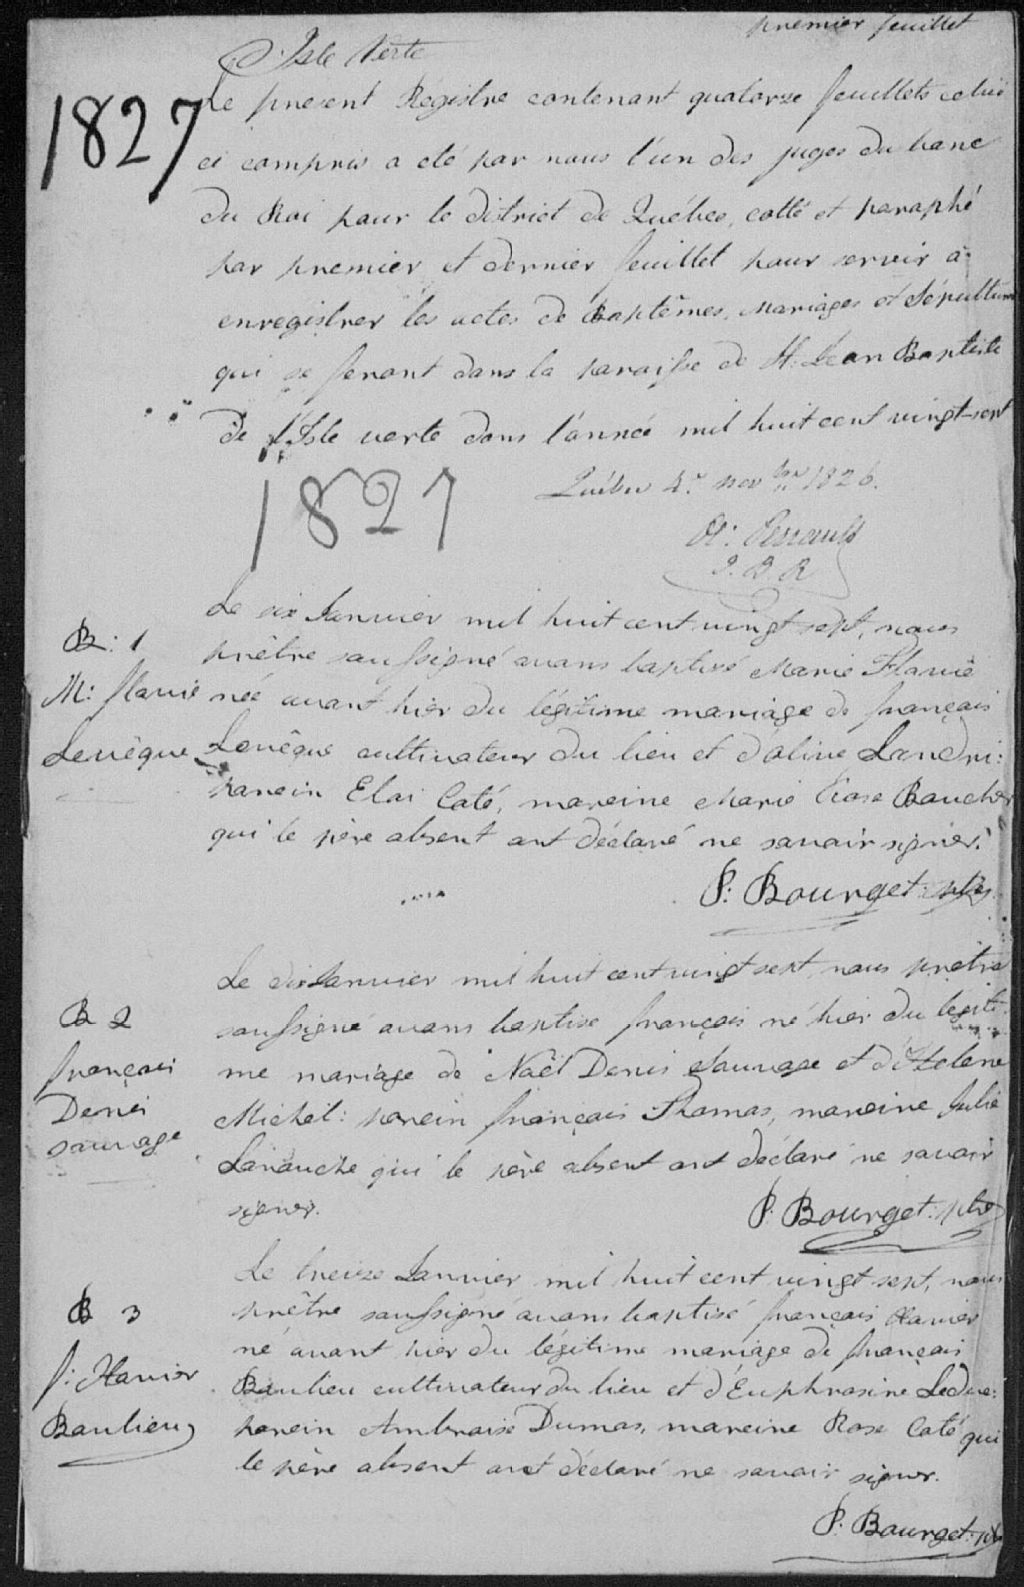 premier feuillet
Isle Verte
1827
Le present Régistre contenant quatorze feuillets celui
ci compris a été par nous l'un des juges du banc
du Roi pour le district de Québec, cotté et paraphé
par premier et dernier feuillet pour servir à
enregistrer les actes de Baptêmes, Mariages et Sépultures
qui se feront dans la paroisse de St: Jean Baptiste
de l'Isle verte dans l'année mil huit cent vingt-sept
Québec 4e novbre 1826.
1827
Perrault
J. B. R
B: 1
M: flavie
Levêque
Le six Janvier mil huit cent vingt sept, nous
prêtre soussigné avons baptisé Marie Flavie
née avant hier du légitime mariage de françois
Levêque cultivateur du lieu et d'olive Landri:
parein Eloi Coté, mareine Marie Rose Boucher
qui le père absent ont déclaré ne savoir signer.
P: Bourget ptre
B 2
françois
Denis
sauvage
Le dix Janvier mil huit cent vingt sept, nous prêtre
soussigné avons baptisé françois né hier du légiti-
me mariage de Noël Denis Sauvage et d'Helene
Michel: parein françois Thomas, mareine Julie
Larouche qui le père absent ont déclaré ne savoir
signer.
P. Bourget: ptre
B 3
f: Xavier
Baulieu
Le treize Janvier mil huit cent vingt sept, nous
prêtre soussigné avons baptisé françois Xavier
né avant hier du légitime mariage de françois
Baulieu cultivateur du lieu et d'Euphrosine Leduc:
parein Ambroise Dumas, mareine Rose Coté qui
le père absent ont déclaré ne savoir signer.
P. Bourget: ptre